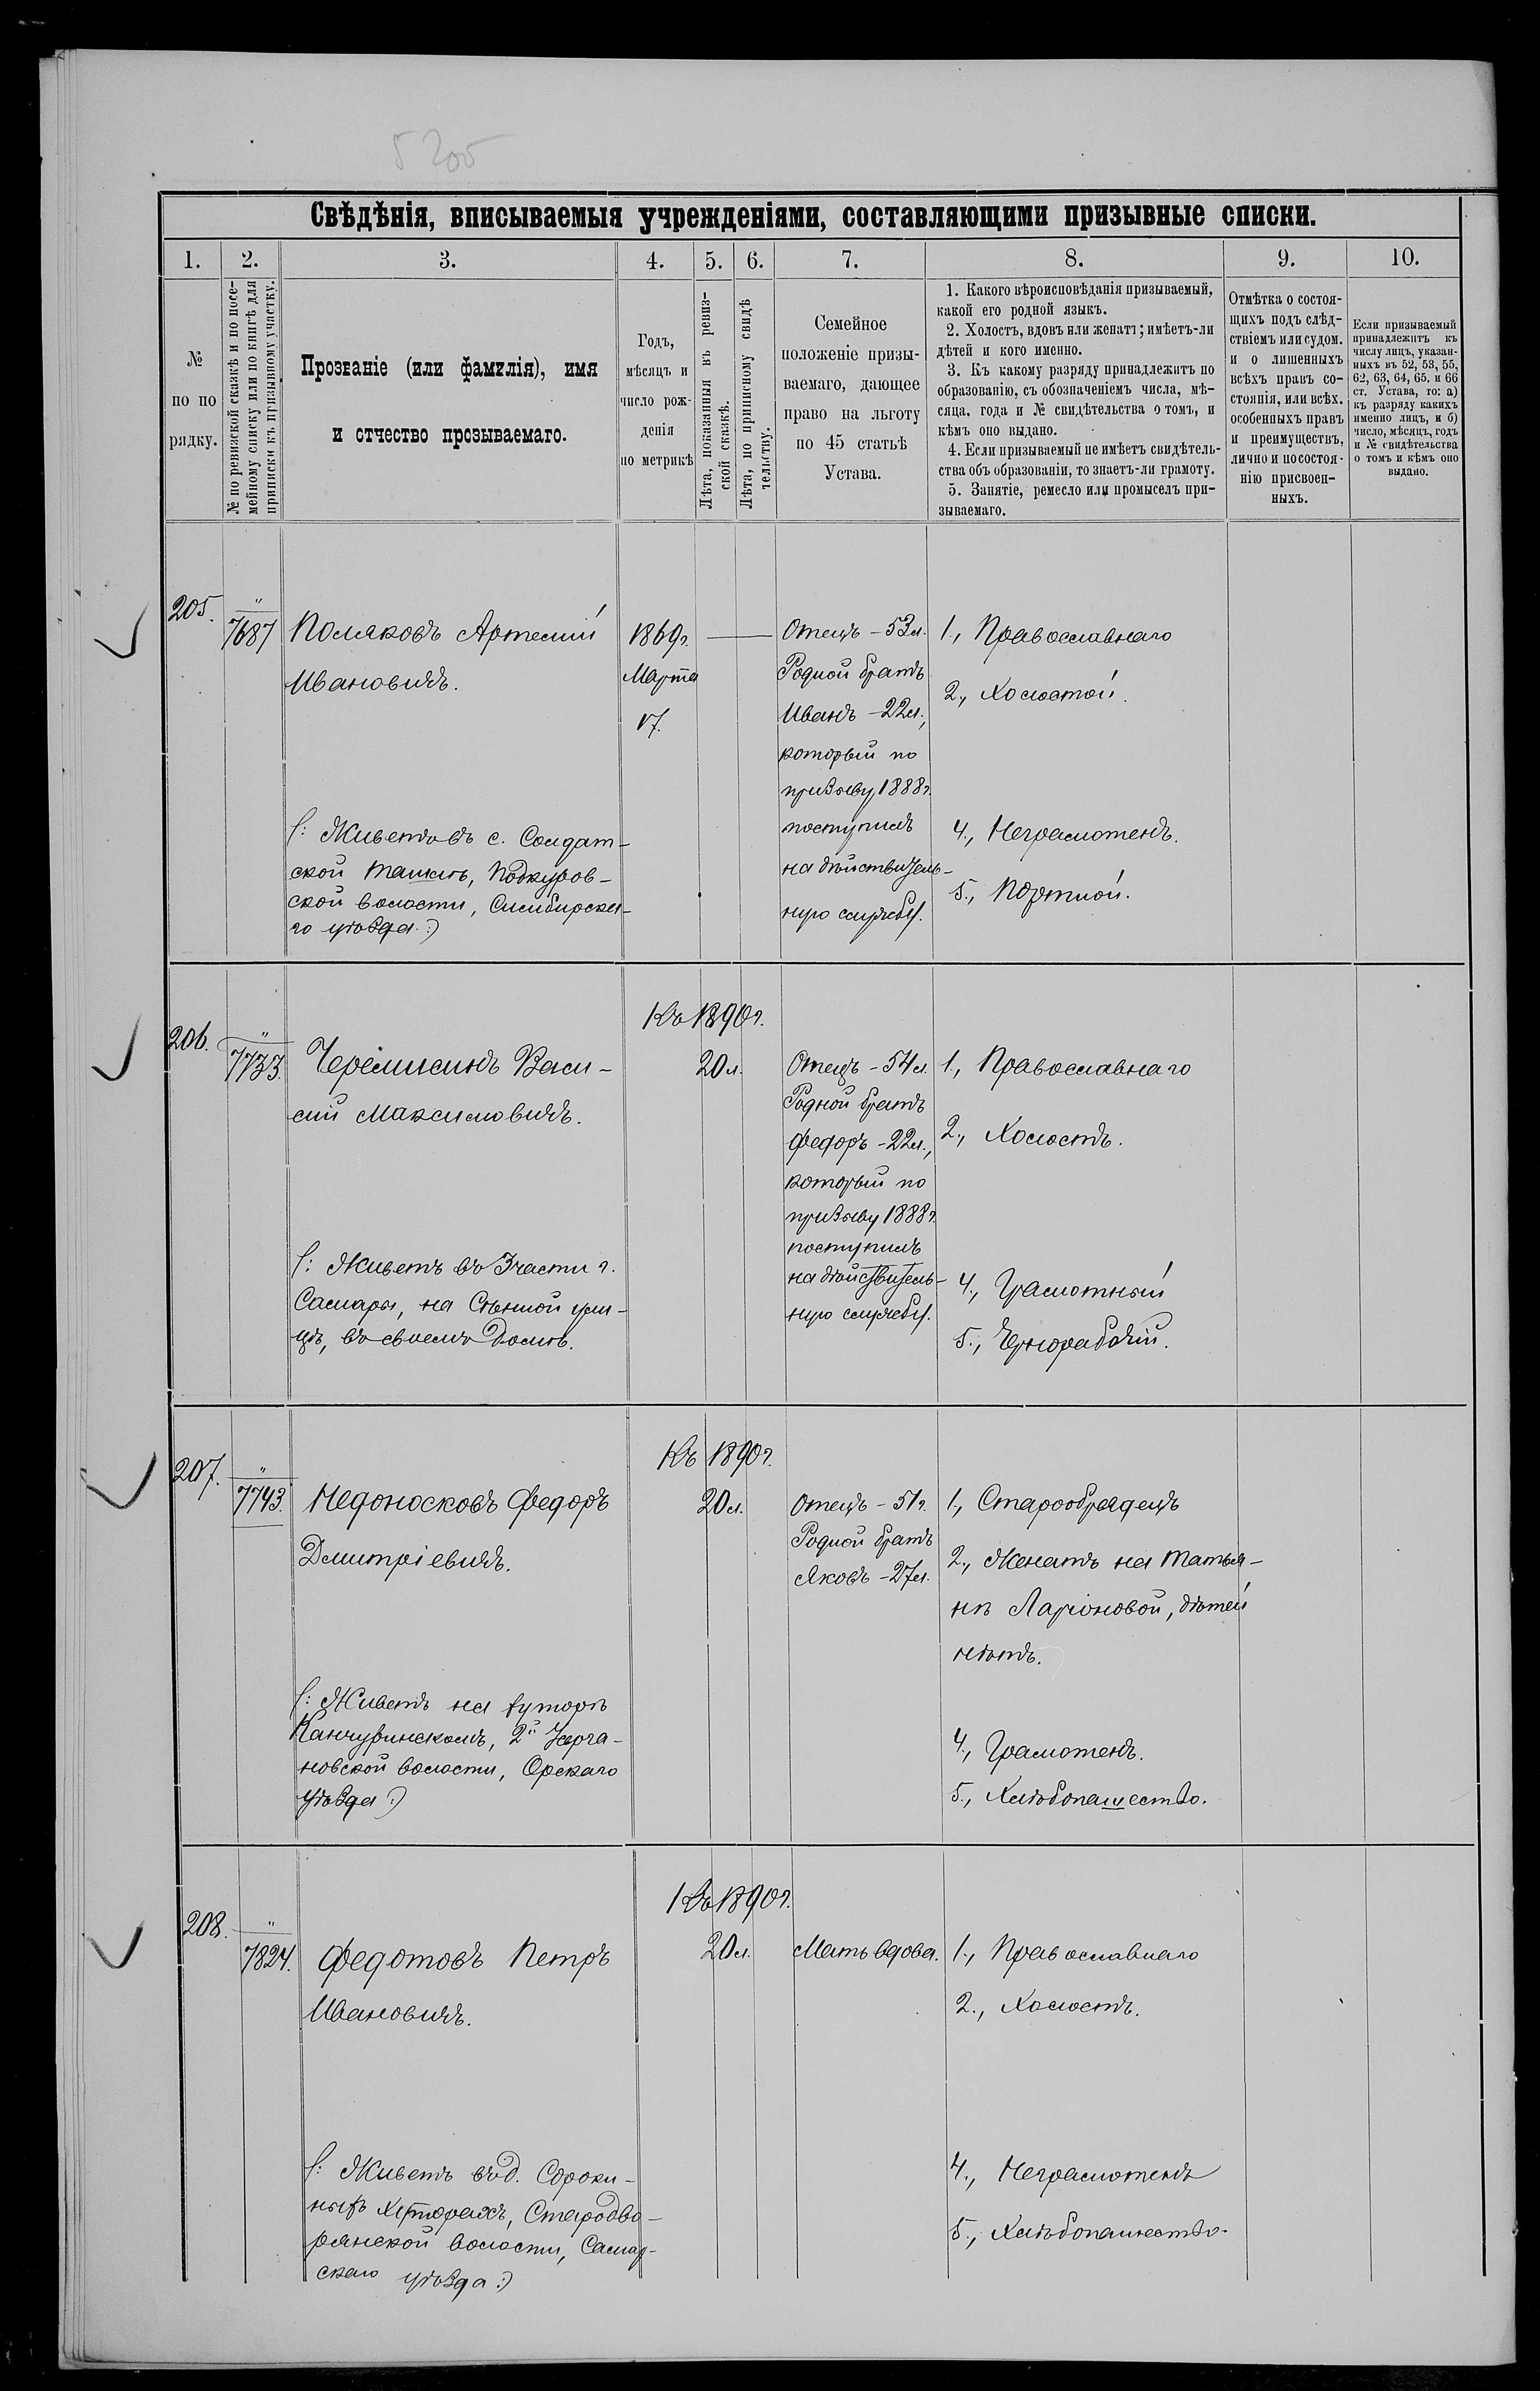 5 205
Свѣдѣнія, вписываемыя учрежденіями, составляющими призывные списки.
1. 2. 3. 4. 5. 6. 7. 8. 9. 10.
№
по по
рядку.
№ по ревизской сказкѣ и по посе-
мейному списку или по книгѣ для
приписки къ призывному участку.
Прозваніе (или фамилія), имя
и отчество прозываемаго.
Годъ,
мѣсяцъ и
число рож-
денія
по метрикѣ
Лѣта, показанныя въ ревиз-
ской сказкѣ.
Лѣта, по приписному свидѣ
тельству.
Семейное
положеніе призы-
ваемаго, дающее
право на льготу
по 45 статьѣ
Устава.
1. Какого вѣроисповѣданія призываемый,
какой его родной языкъ.
2. Холостъ, вдовъ или женатъ; имѣетъ-ли
дѣтей и кого именно.
3. Къ какому разряду принадлежитъ по
образованію, съ обозначеніемъ числа, мѣ-
сяца, года и № свидѣтельства о томъ, и
кѣмъ оно выдано.
4. Если призываемый не имѣетъ свидѣтель-
ства объ образованіи, то знаетъ-ли грамоту.
5. Занятіе, ремесло или промыселъ при-
зываемаго.
Отмѣтка о состоя-
щихъ подъ слѣд-
ствіемъ или судом.
и о лишенныхъ
всѣхъ правъ со-
стоянія, или всѣх.
особенныхъ правъ
и преимуществъ,
лично и по состоя-
нію присвоен-
ныхъ.
Если призываемый
принадлежитъ къ
числу лицъ, указан-
ныхъ въ 52, 53, 55,
62, 63, 64, 65, и 66
ст. Устава, то: а)
къ разряду какихъ
именно лицъ, и б)
число, мѣсяцъ, годъ
и № свидѣтельства
о томъ и кѣмъ оно
выдано.
205.
"
7687
Поляковъ Артемій
Ивановичъ.
(: Живетъ въ с. Солдат-
ской Ташлѣ, Подкуров-
ской волости, Симбирска-
го уѣзда :)
1869г.
Марта
17.
Отецъ - 53л.
Родной братъ
Иванъ - 22л.,
который по
призыву 1888г.
поступилъ
на дѣйствитель-
ную службу.
1., Православнаго
2., Холостой.
4., Неграмотенъ.
5., Портной.
206.
"
7733.
Черемшинъ Васи-
лій Максимовичъ.
(: Живетъ въ 3 части г.
Самары, на Сѣнной ули-
цѣ, въ своемъ домѣ.
Къ 1890г.
20л.
Отецъ - 54л.
Родной братъ
Федоръ - 22л.,
который по
призыву 1888г.
поступилъ
на дѣйствитель-
ную службу.
1., Православнаго
2., Холостъ.
4., Грамотный
5., Чернорабочій.
207.
"
7743.
Недоносковъ Федоръ
Дмитріевичъ.
(: Живетъ на хуторѣ
Канчуринскомъ, 2й
новской волости, Орскаго
уѣзда :)
Къ 1890г.
20л.
Отецъ - 51г.
Родной братъ
Яковъ - 27л.
1., Старообрядецъ
2., Женатъ на Татья-
нѣ Ларіоновой, дѣтей
нѣтъ.
4., Грамотенъ.
5., Хлѣбопашество.
208.
"
7824.
Федотовъ Петръ
Ивановичъ.
(: Живетъ въ д. Сороки-
ныхъ Хуторахъ, Стародво-
рянской волости, Самар-
скаго уѣзда :)
Къ 1890г.
20л.
Мать вдова.
1., Православнаго
2., Холостъ.
4., Неграмотенъ
5., Хлѣбопашество.